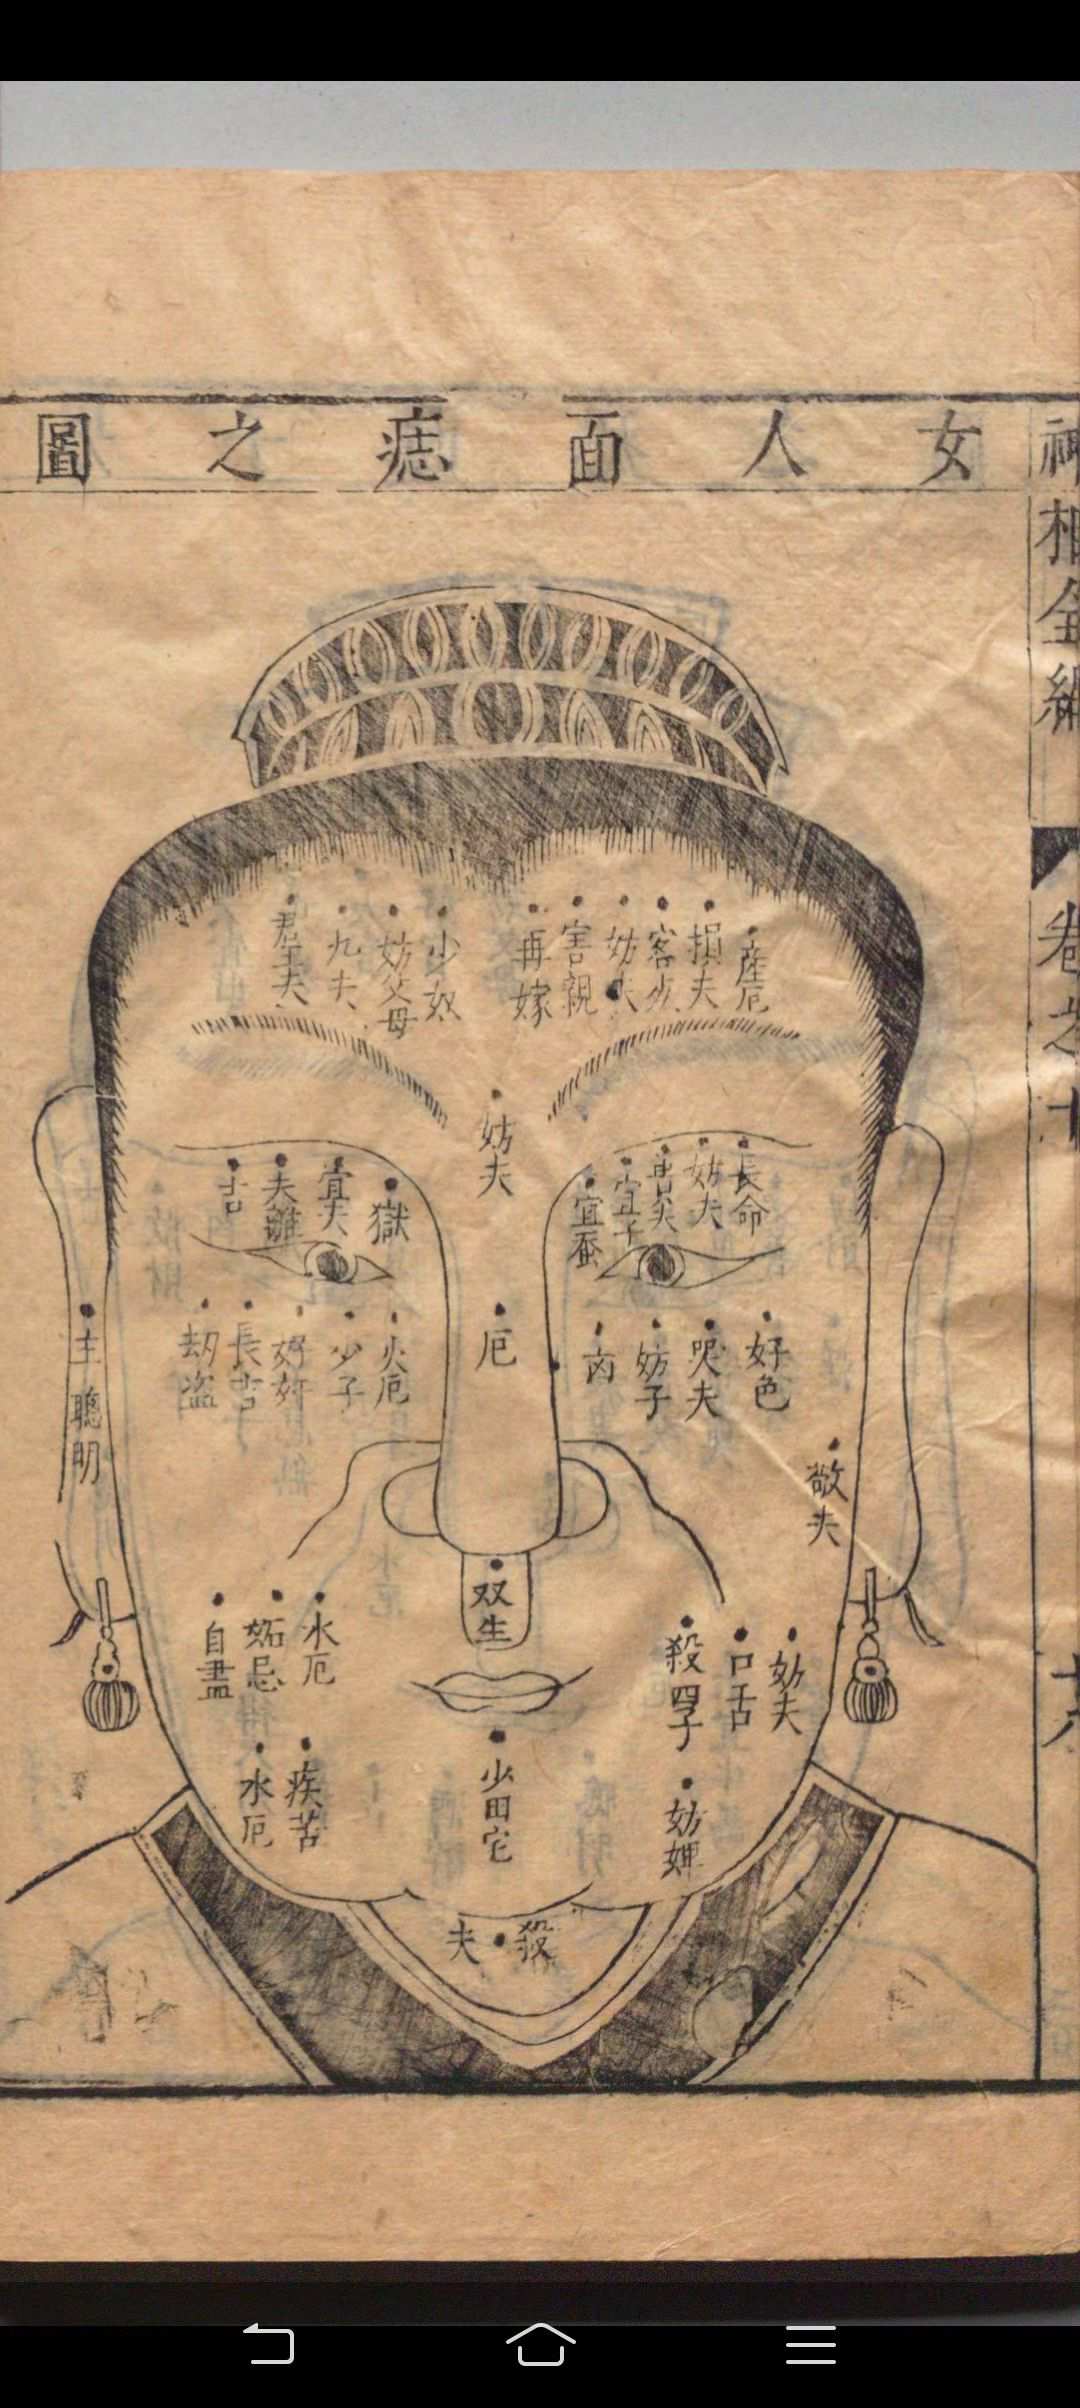 女人面痣之圖
神相全編
卷之十
産厄
損夫
客死
妨夫
害親
再嫁
少奴
妨父母
九夫
妨夫
長命
妨夫
宜子
宜蚕
獄
宜夫
夫離
吉
厄
好色
哭夫
妨子
火厄
少子
劫盗
主聰明
敬夫
双生
妨夫
口舌
殺四子
水厄
妬忌
自盡
少田宅
妨婢
疾苦
水厄
殺夫